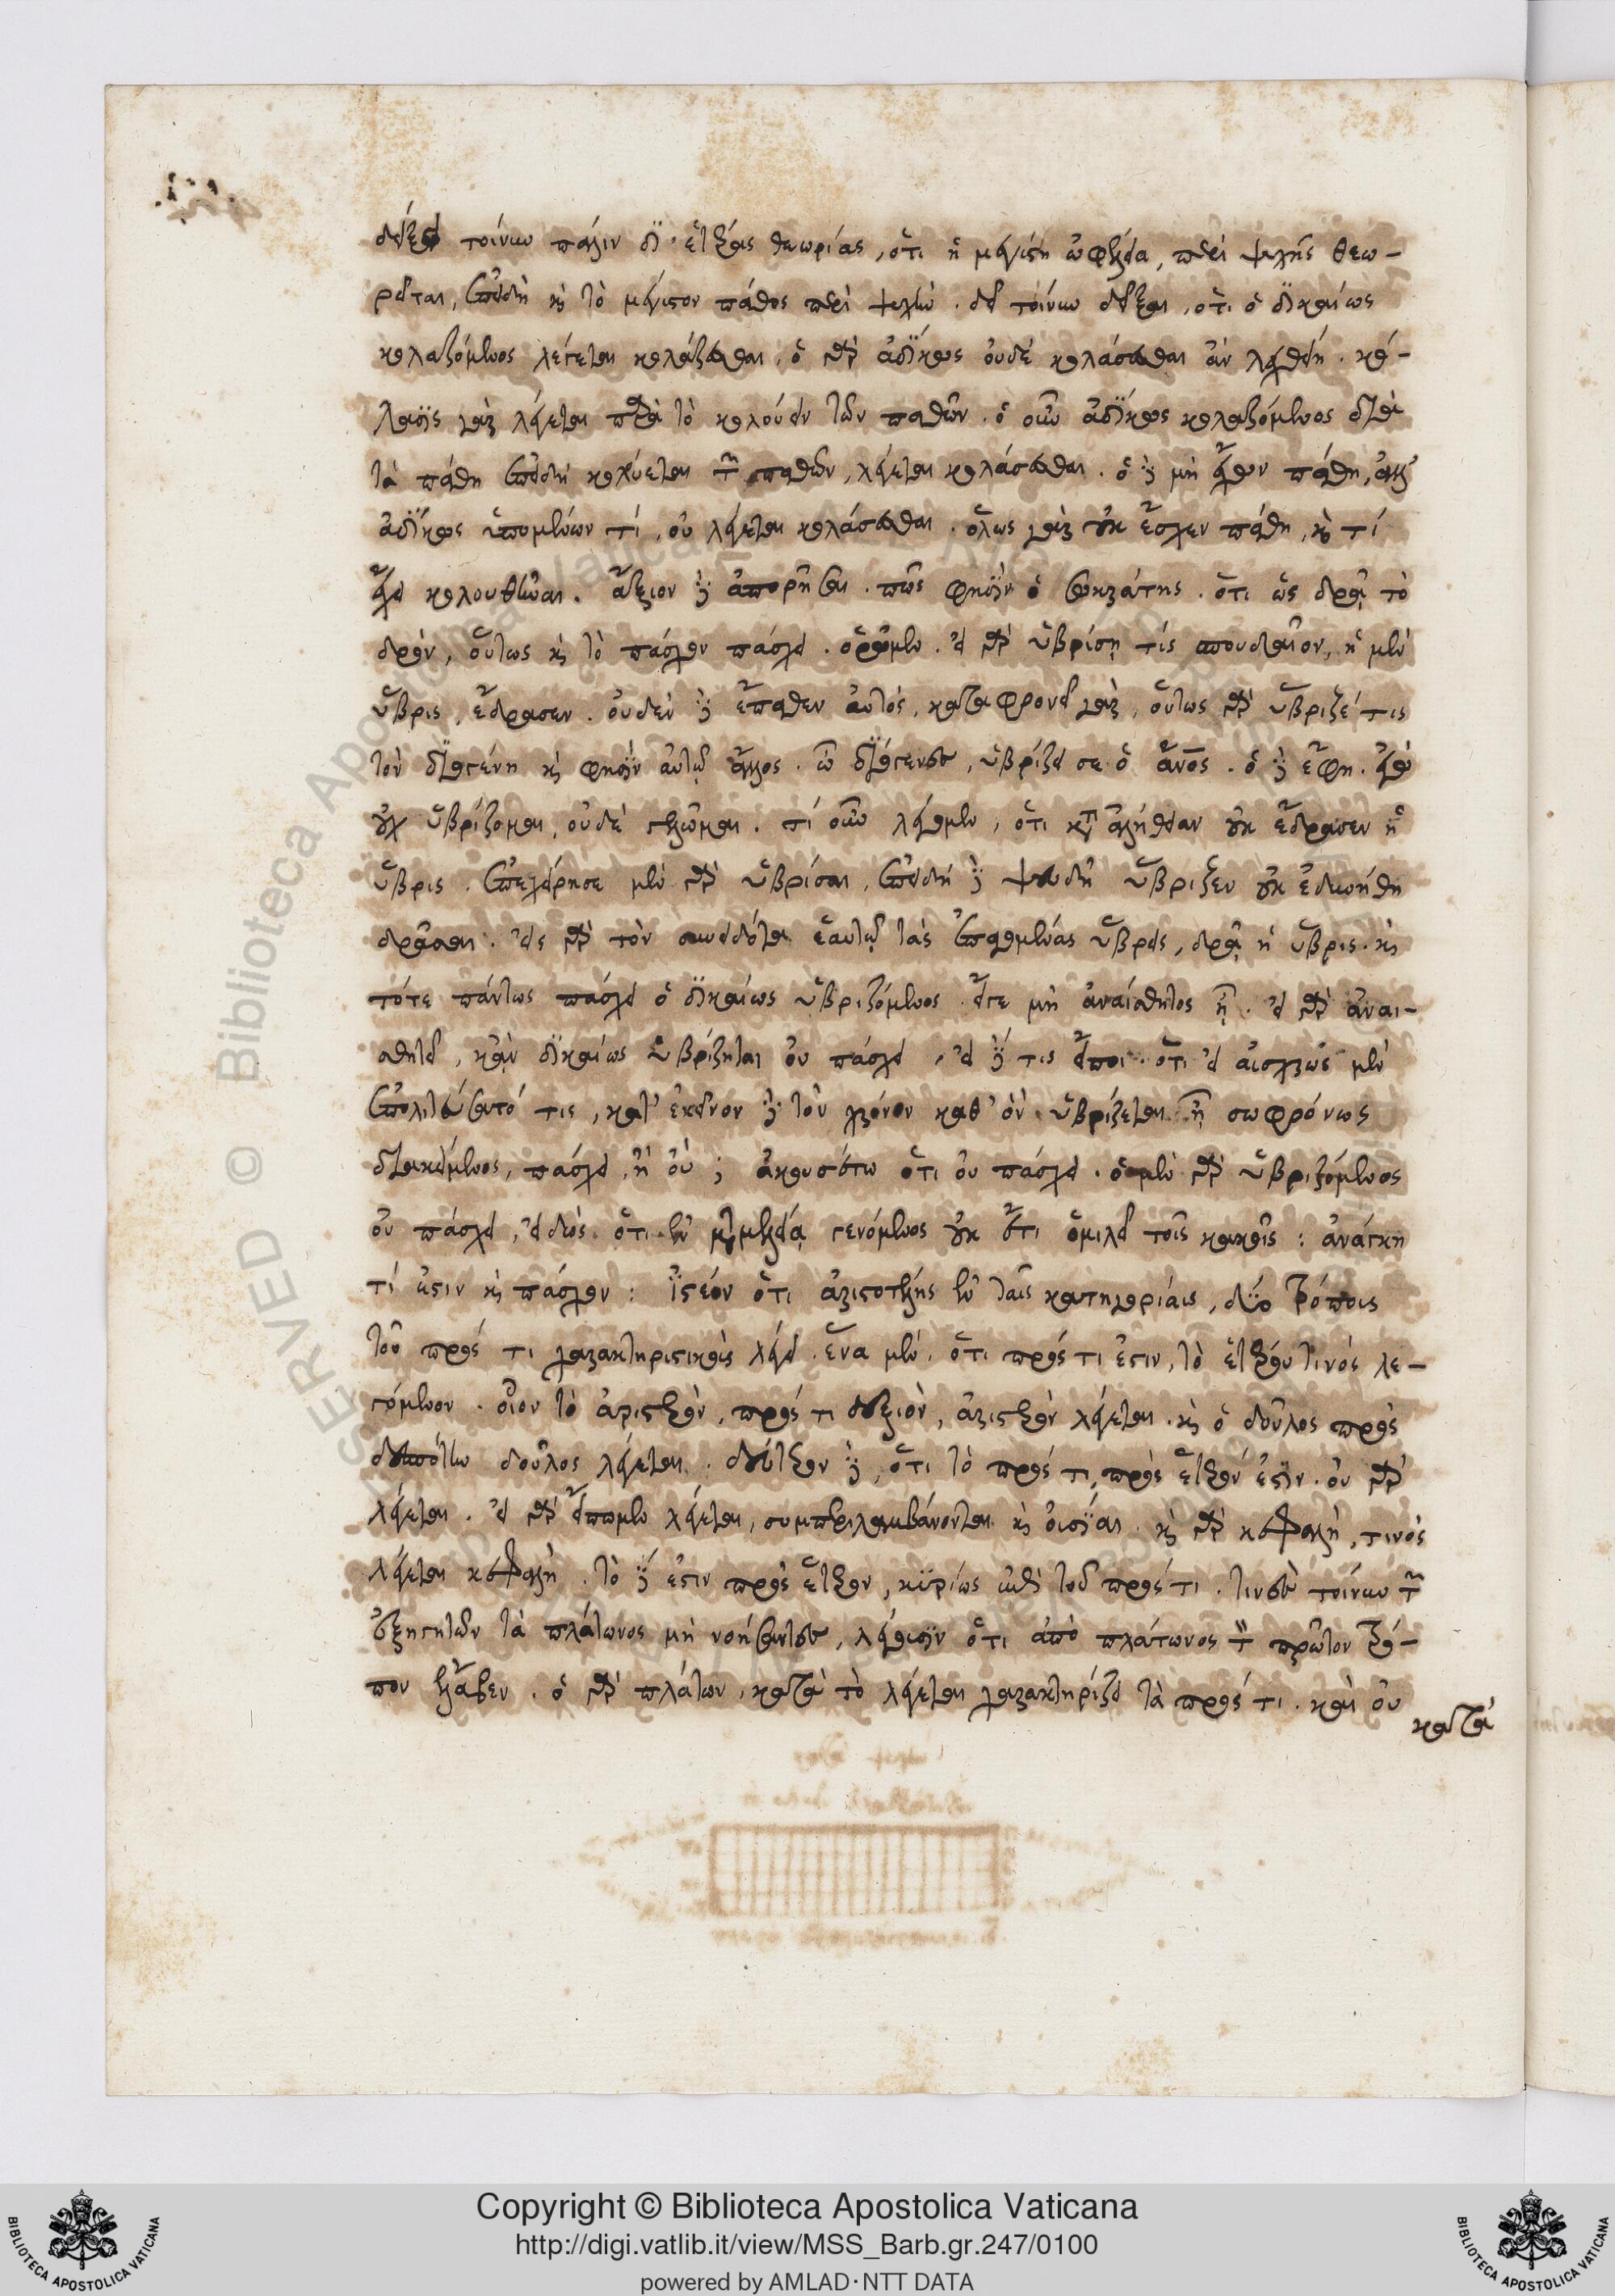 δείξει τοίνυν πάλιν δι' ἑτέρας θεωρίας, ὅτι ἡ μεγίστη ὠφέλεια, περὶ ψυχῆς θεω-
ρεῖται, ἐπειδὴ καὶ τὸ μέγιστον πάθος περὶ ψυχήν. δεῖ τοίνυν δεῖξαι, ὅτι ὁ δικαίως
κολαζόμενος λέγεται κολάζεσθαι, ὁ γὰρ ἀδίκως οὐδὲ κολάσεσθαι ἂν λεχθείη. κό-
λασις γὰρ λέγεται παρὰ τὸ κολούειν τῶν παθῶν. ὁ οὖν ἀδίκως κολαζόμενος διὰ
τὰ πάθη ἐπειδὴ κολύεται τῶν παθῶν, λέγεται κολάσεσθαι. ὁ δὲ μὴ ἔχων πάθη, ἀλλ'
ἀδίκως ὑπομένων τί, οὐ λέγεται κολάσεσθαι. ὅλως γὰρ οὐκ ἔσχεν πάθη, καὶ τί
ἔχει κολουθῆναι. ἄξιον δὲ ἀπορῆσαι. πῶς φησὶν ὁ σωκράτης. ὅτι ὡς δρᾷ τὸ
δρᾶν, οὕτως καὶ τὸ πάσχειν πάσχει. ὁρῶμεν. εἰ γὰρ ὑβρίσῃ τίς σπουδαῖον, ἡ μὲν
ὕβρις, ἔδρασεν. οὐδὲν δὲ ἔπαθεν αὐτός, καταφρονεῖ γάρ, οὕτως γὰρ ὕβριζέ τις
τὸν διογένη καὶ φησὶν αὐτῷ ἄλλος. ὦ διόγενες, ὑβρίζει σε ὁ ἄνος. ὁ δὲ ἔφη. ἐγὼ
οὐχ ὑβρίζομαι, οὐδὲ γελῶμαι. τί οὖν λέγομεν, ὅτι κατὰ ἀλήθειαν οὐκ ἔδρασεν ἡ
ὕβρις. ἐπεχείρησε μὲν γὰρ ὑβρίσαι, ἐπειδὴ δὲ ψευδῆ ὕβριξεν οὐκ ἐδυνήθη
δρᾶσαι. εἰς γὰρ τὸν συνειδότα ἑαυτῷ τὰς ἐπαγομένας ὕβρεις, δρᾷ ἡ ὕβρις. καὶ
τότε πάντως πάσχει ὁ δικαίως ὑβριζόμενος. εἴγε μὴ ἀναίσθητος ᾖ. εἰ γὰρ ἀναι-
σθητεῖ, κἂν δικαίως ὑβρίζηται οὐ πάσχει. εἰ δέ τις εἴποι. ὅτι εἰ αἰσχρῶς μὲν
ἐπολιτεύσατό τις, κατ' ἐκεῖνον δὲ τὸν χρόνον καθ' ὃν ὑβρίζεται ᾖ σωφρόνως
διακείμενος, πάσχει, ἢ οὔ; ἀκουσάτω ὅτι οὐ πάσχει. ὁ μὲν γὰρ ὑβριζόμενος
οὐ πάσχει, εἰδὼς ὅτι ἐν μεταμελείᾳ γενόμενος οὐκ ἔτι ὁμιλεῖ τοῖς κακοῖς: ἀνάγκη
τί ἐστιν καὶ πάσχειν: ἰστέον ὅτι ἀριστοτέλης ἐν ταῖς κατηγορίαις, δύο τρόποις
τοῦ πρός τι χαρακτηριστικοῖς λέγει. ἕνα μὲν, ὅτι πρός τι ἐστιν, τὸ ἑτέρου τινὸς λε-
γόμενον. οἷον τὸ ἀριστερὸν, πρός τι δεξιὸν, ἀριστερὸν λέγεται. καὶ ὁ δοῦλος πρὸς
δεσπότην δοῦλος λέγεται. δεύτερον δὲ, ὅτι τὸ πρός τι, πρὸς ἕτερόν ἐστιν. οὐ γὰρ
λέγεται. εἰ γὰρ εἴπωμεν λέγεται, συμπεριλαμβάνονται καὶ οὐσίαι. καὶ γὰρ κεφαλὴ, τινὸς
λέγεται κεφαλὴ. τὸ δέ ἐστιν πρὸς ἕτερον, κυρίως ἐπὶ τοῦ πρός τι. τινὲς τοίνυν τῶν
ἐξηγητῶν τὰ πλάτωνος μὴ νοήσαντες, λέγουσιν ὅτι ἀπὸ πλάτωνος τὸν πρῶτον τρό-
πον ἔλαβεν. ὁ γὰρ πλάτων, κατὰ τὸ λέγεται χαρακτηρίζει τὰ πρός τι. καὶ οὐ
κατὰ
Copyright © Biblioteca Apostolica Vaticana
http://digi.vatlib.it/view/MSS_Barb.gr.247/0100
powered by AMLAD·NTT DATA